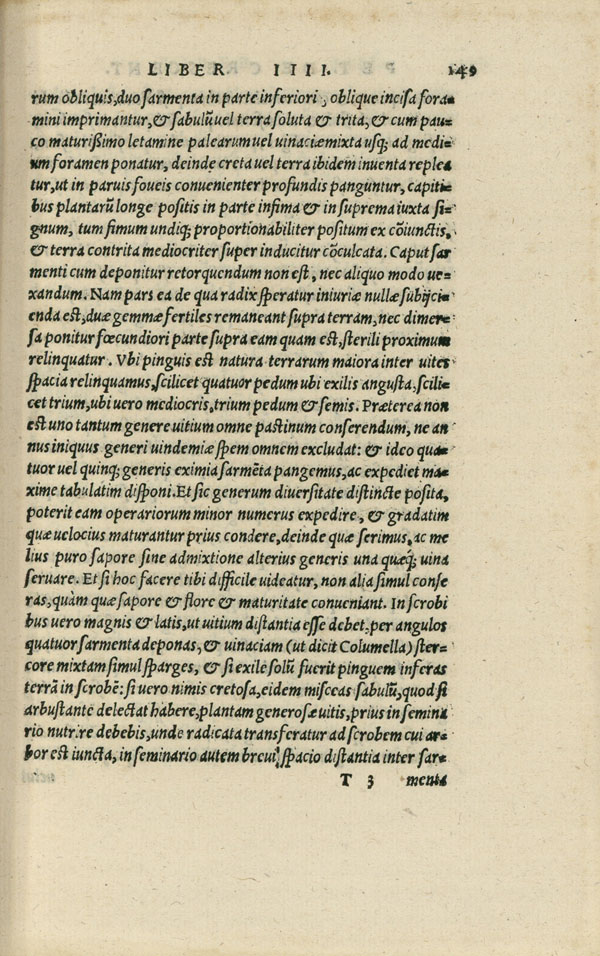 LIBER IIII. 149
rum obliquis, duo sarmenta in parte inferiori, oblique incisa fora-
mini imprimantur, & sabulū uel terra soluta & trita, & cum pau-
co maturißimo letamine palearum uel uinaciæ mixta usq; ad medi-
um foramen ponatur, deinde creta uel terra ibidem inuenta replea
tur, ut in paruis foueis conuenienter profundis panguntur, capiti-
bus plantarū longe positis in parte infima & in suprema iuxta si-
gnum, tum fimum undiq; proportionabiliter positum ex cōiunctis,
& terra contrita mediocriter super inducitur cōculcata. Caput sar
menti cum deponitur retorquendum non est, nec aliquo modo ue-
xandum. Nam pars ea de qua radix speratur iniuriæ nullæ subijci-
enda est, duæ gemmæ fertiles remaneant supra terram, nec dimer-
sa ponitur fœcundiori parte supra eam quam est, sterili proximum
relinquatur. Vbi pinguis est natura terrarum maiora inter uites
spacia relinquamus, scilicet quatuor pedum ubi exilis angusta, scili-
cet trium, ubi uero mediocris, trium pedum & semis. Præterea non
est uno tantum genere uitium omne pastinum conserendum, ne an
nus iniquus generi uindemiæ spem omnem excludat: & ideo qua-
tuor uel quinq; generis eximia sarmēta pangemus, ac expediet ma-
xime tabulatim disponi. Et sic generum diuersitate distincte posita,
poterit eam operariorum minor numerus expedire, & gradatim
quæ uelocius maturantur prius condere, deinde quæ serimus, ac me
lius puro sapore sine admixtione alterius generis una quæq; uina
seruare. Et si hoc facere tibi difficile uideatur, non alia simul conse
ras, quàm quæ sapore & flore & maturitate conueniant. In scrobi
bus uero magnis & latis, ut uitium distantia esse debet: per angulos
quatuor sarmenta deponas, & uinaciam (ut dicit Columella) ster-
core mixtam simul sparges, & si exile solū fuerit pinguem inferas
terrā in scrobē: si uero nimis cretosa, eidem misceas sabulū, quod si
arbustante delectat habere, plantam generosæ uitis, prius in semina
rio nutrire debebis, unde radicata transferatur ad scrobem cui ar-
bor est iuncta, in seminario autem breui spacio distantia inter sar-
T 3 menta